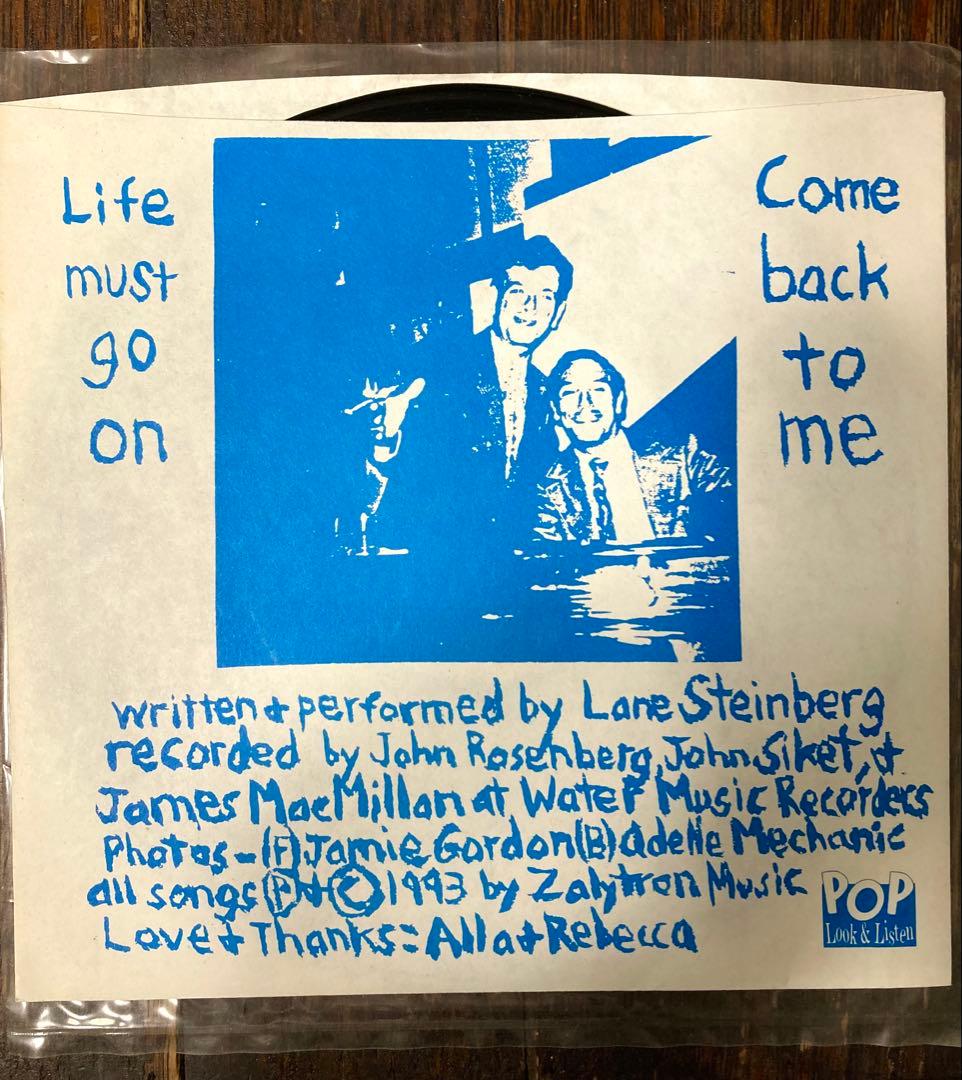 Life
must
go
on
Come
back
to
me
written + performed by Lane Steinberg
recorded by John Rosenberg, John Siket, +
James MacMillan at Water Music Recorders
Photos - (F) Jamie Gordon (B) Adelle Mechanic
all songs Ⓟ + © 1993 by Zalytron Music
Love + Thanks: Alla + Rebecca
POP
Look & Listen